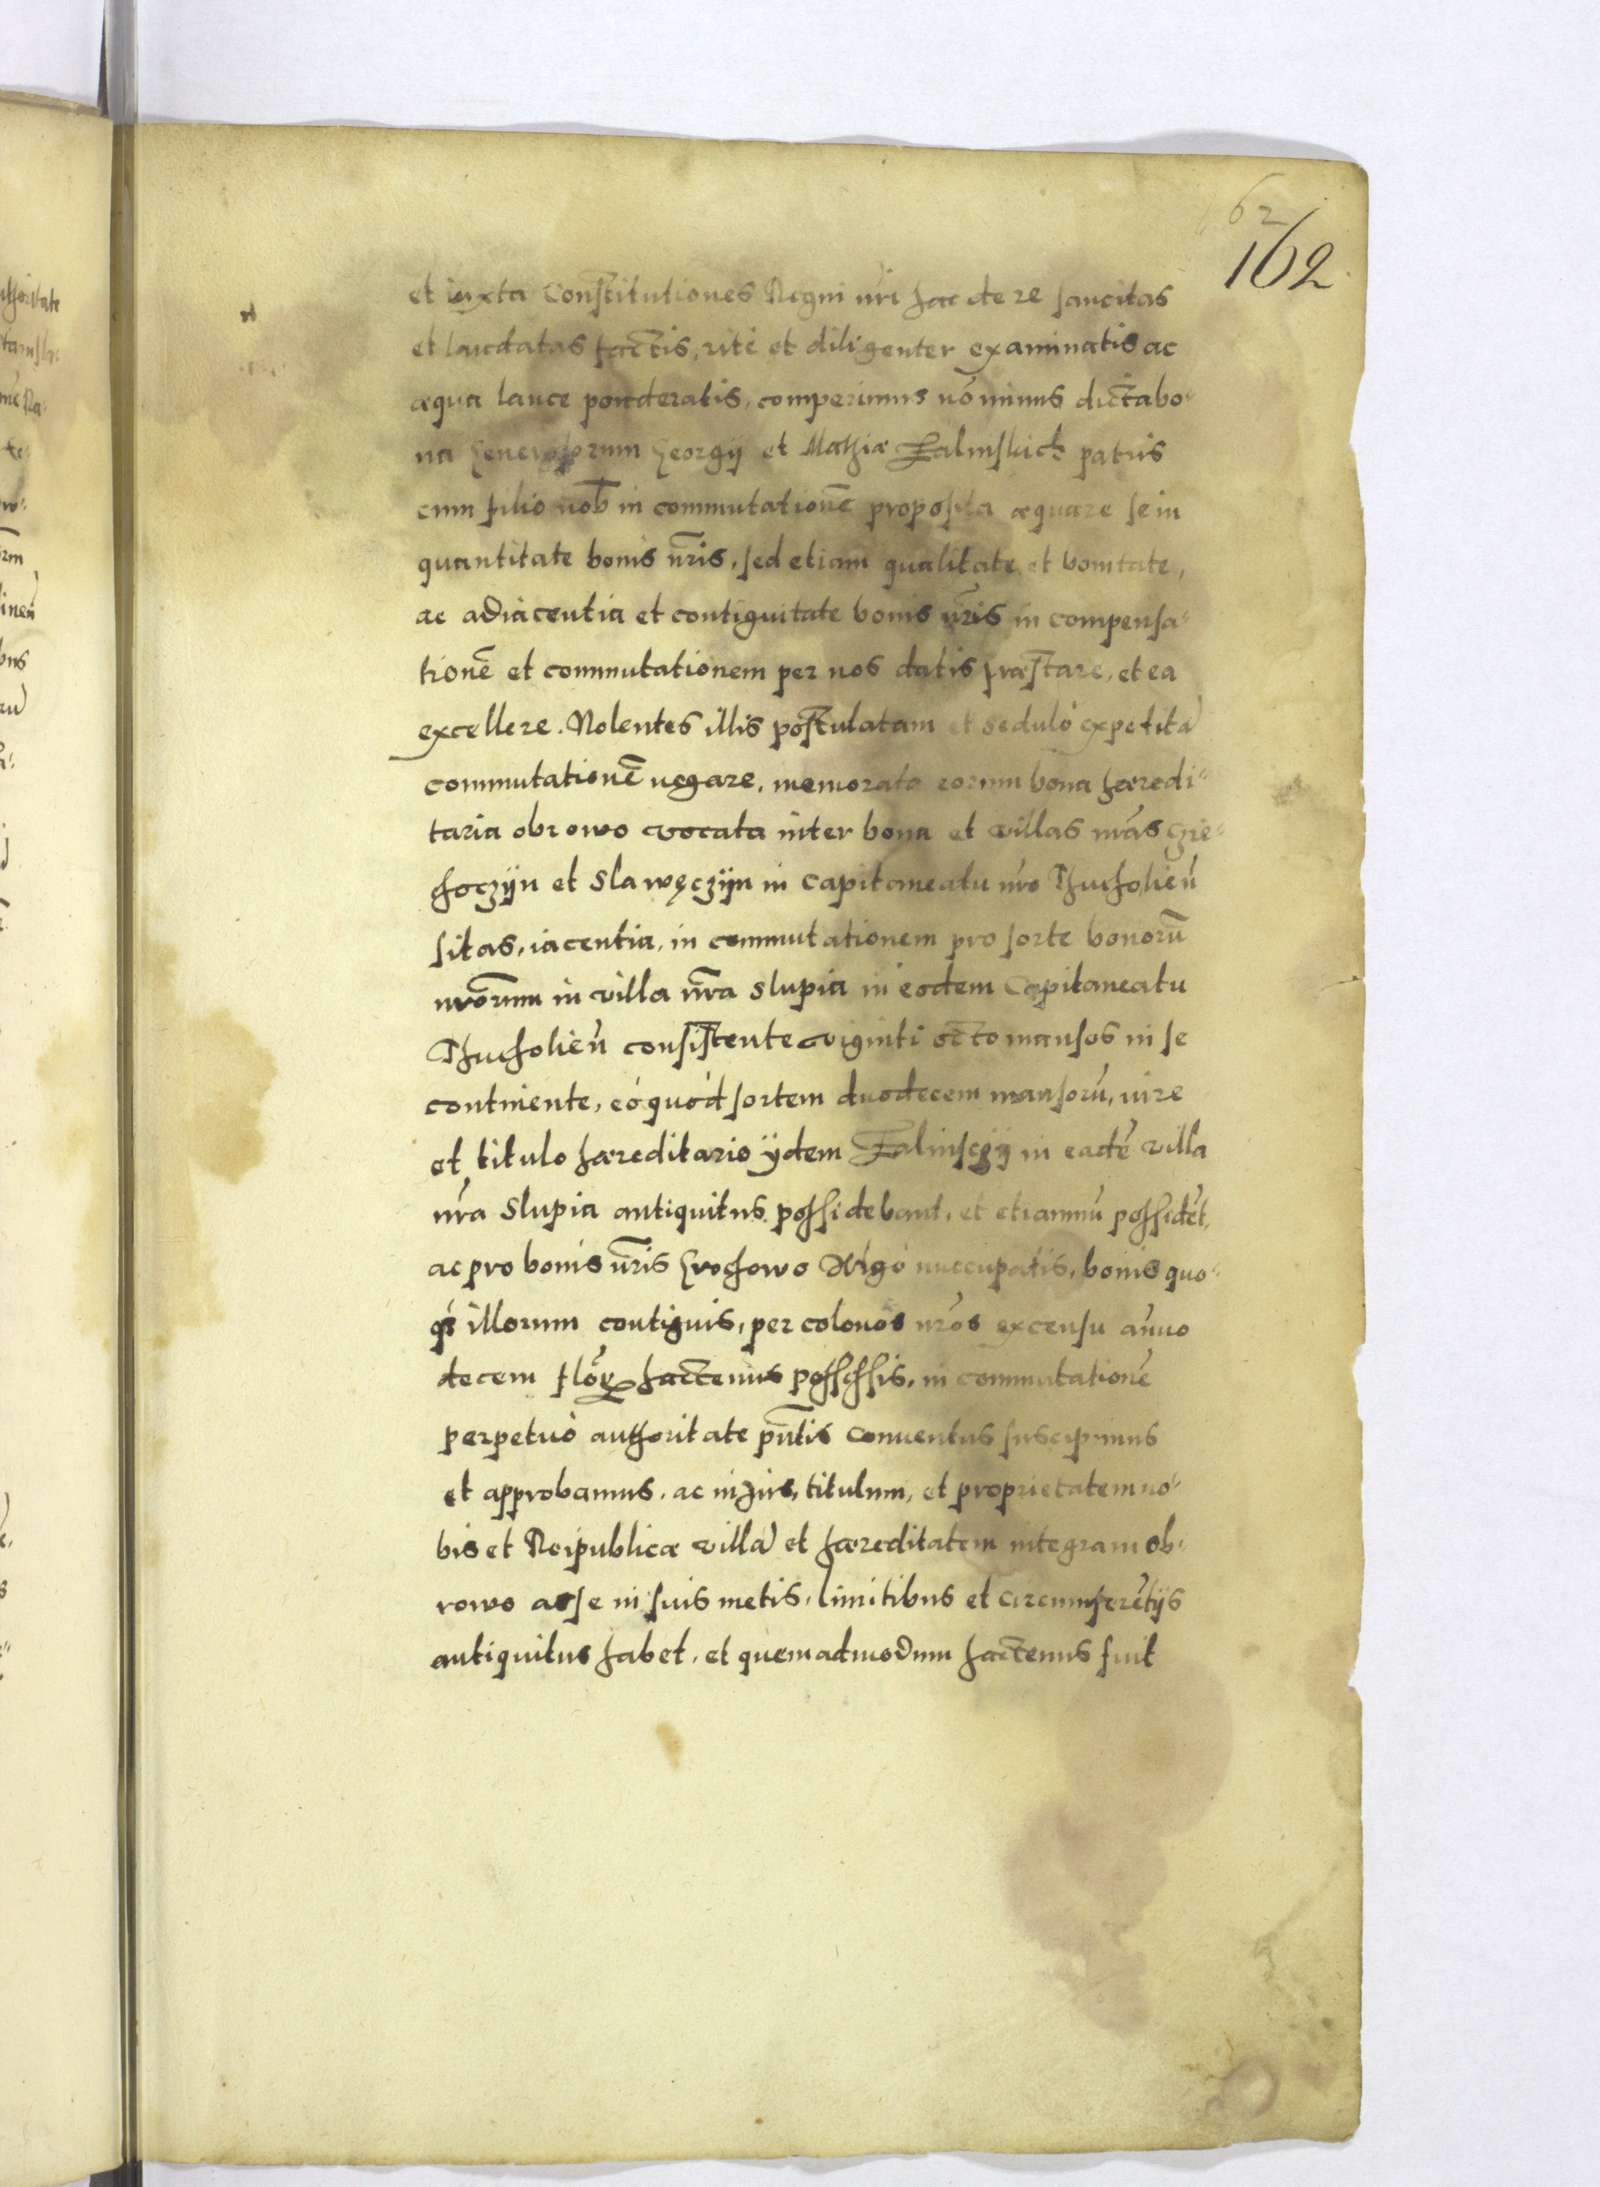 162
162
et iuxta Constitutiones Regni nr̃i hac de re sancitas
et laudatas factis, ritè et diligenter examinatis ac
æqua lance ponderatis, comperimus nõ minus dicta bo-
na Generosorum Georgij et Mathiæ Zalinskich patris
cum filio nob̃ in commutationẽ proposita æquare se in
quantitate bonis nr̃is, sed etiam qualitate et bonitate,
ac adiacentia et contiguitate bonis nr̃is in compensa-
tionẽ et commutationem per nos datis præstare, et ea
excellere. Nolentes illis postulatam et sedulò expetitã
commutationẽ negare, memorata eorum bona hæredi-
taria obrowo vocata inter bona et villas nr̃as
choczÿn et Slawęczÿn in Capitaneatu nr̃o Thucholieñ
sitas, iacentia, in commutationem pro sorte bonorũ
nr̃orum in villa nr̃a Slupia in eodem Capitaneatu
Thucholieñ consistente viginti octo mansos in se
continente, eò quòd sortem duodecem mansorũ, iure
et titulo hæreditario ÿdem Zalinscÿ in eadẽ villa
nr̃a Slupia antiquitus possidebant, et etiamnũ possidẽt,
ac pro bonis nr̃is Grochowo nuccupatis, bonis quo-
q́ illorum contiguis, per colonos nr̃os ex censu añuo
decem flor̃ hactenus possessis, in commutationẽ
perpetuò authoritate pñtis conuentus suscipimus
et approbamus, ac in jus, titulum, et proprietatem no-
bis et Reipublicæ villã et hæreditatem integram ob-
rowo se in suis metis, limitibus et circumferẽtijs
antiquitus habet, et quemadmodum hactenus fuit